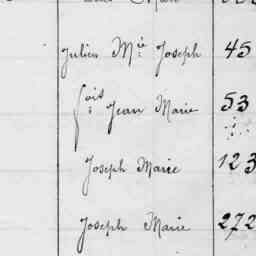 Julien M.ie Joseph 45
f.ois Jean Marie 53
Joseph Marie 123
Joseph Marie 272